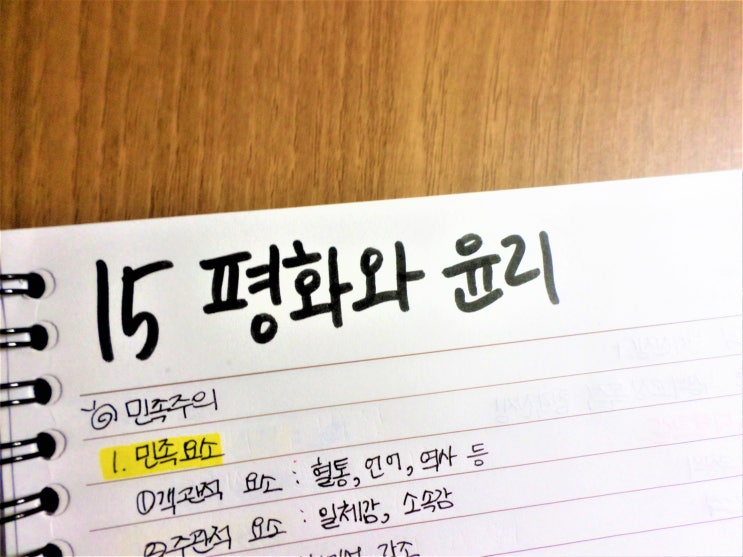 15 평화와 윤리
민족주의
1. 민족요소
①객관적 요소 : 혈통, 언어, 역사 등
②주관적 요소 : 일체감, 소속감
강조